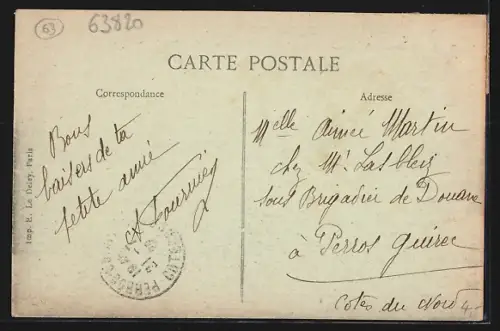 63
63820
CARTE POSTALE
Correspondance
Adresse
Bons
baisers de ta
petite amie
Melle Aimée Martin
chez Mr Lasbleiz
sous Brigadier de Douane
à Perros Guirec
Côtes du Nord
Imp. E. Le Deley, Paris
PERROS-G
COTES